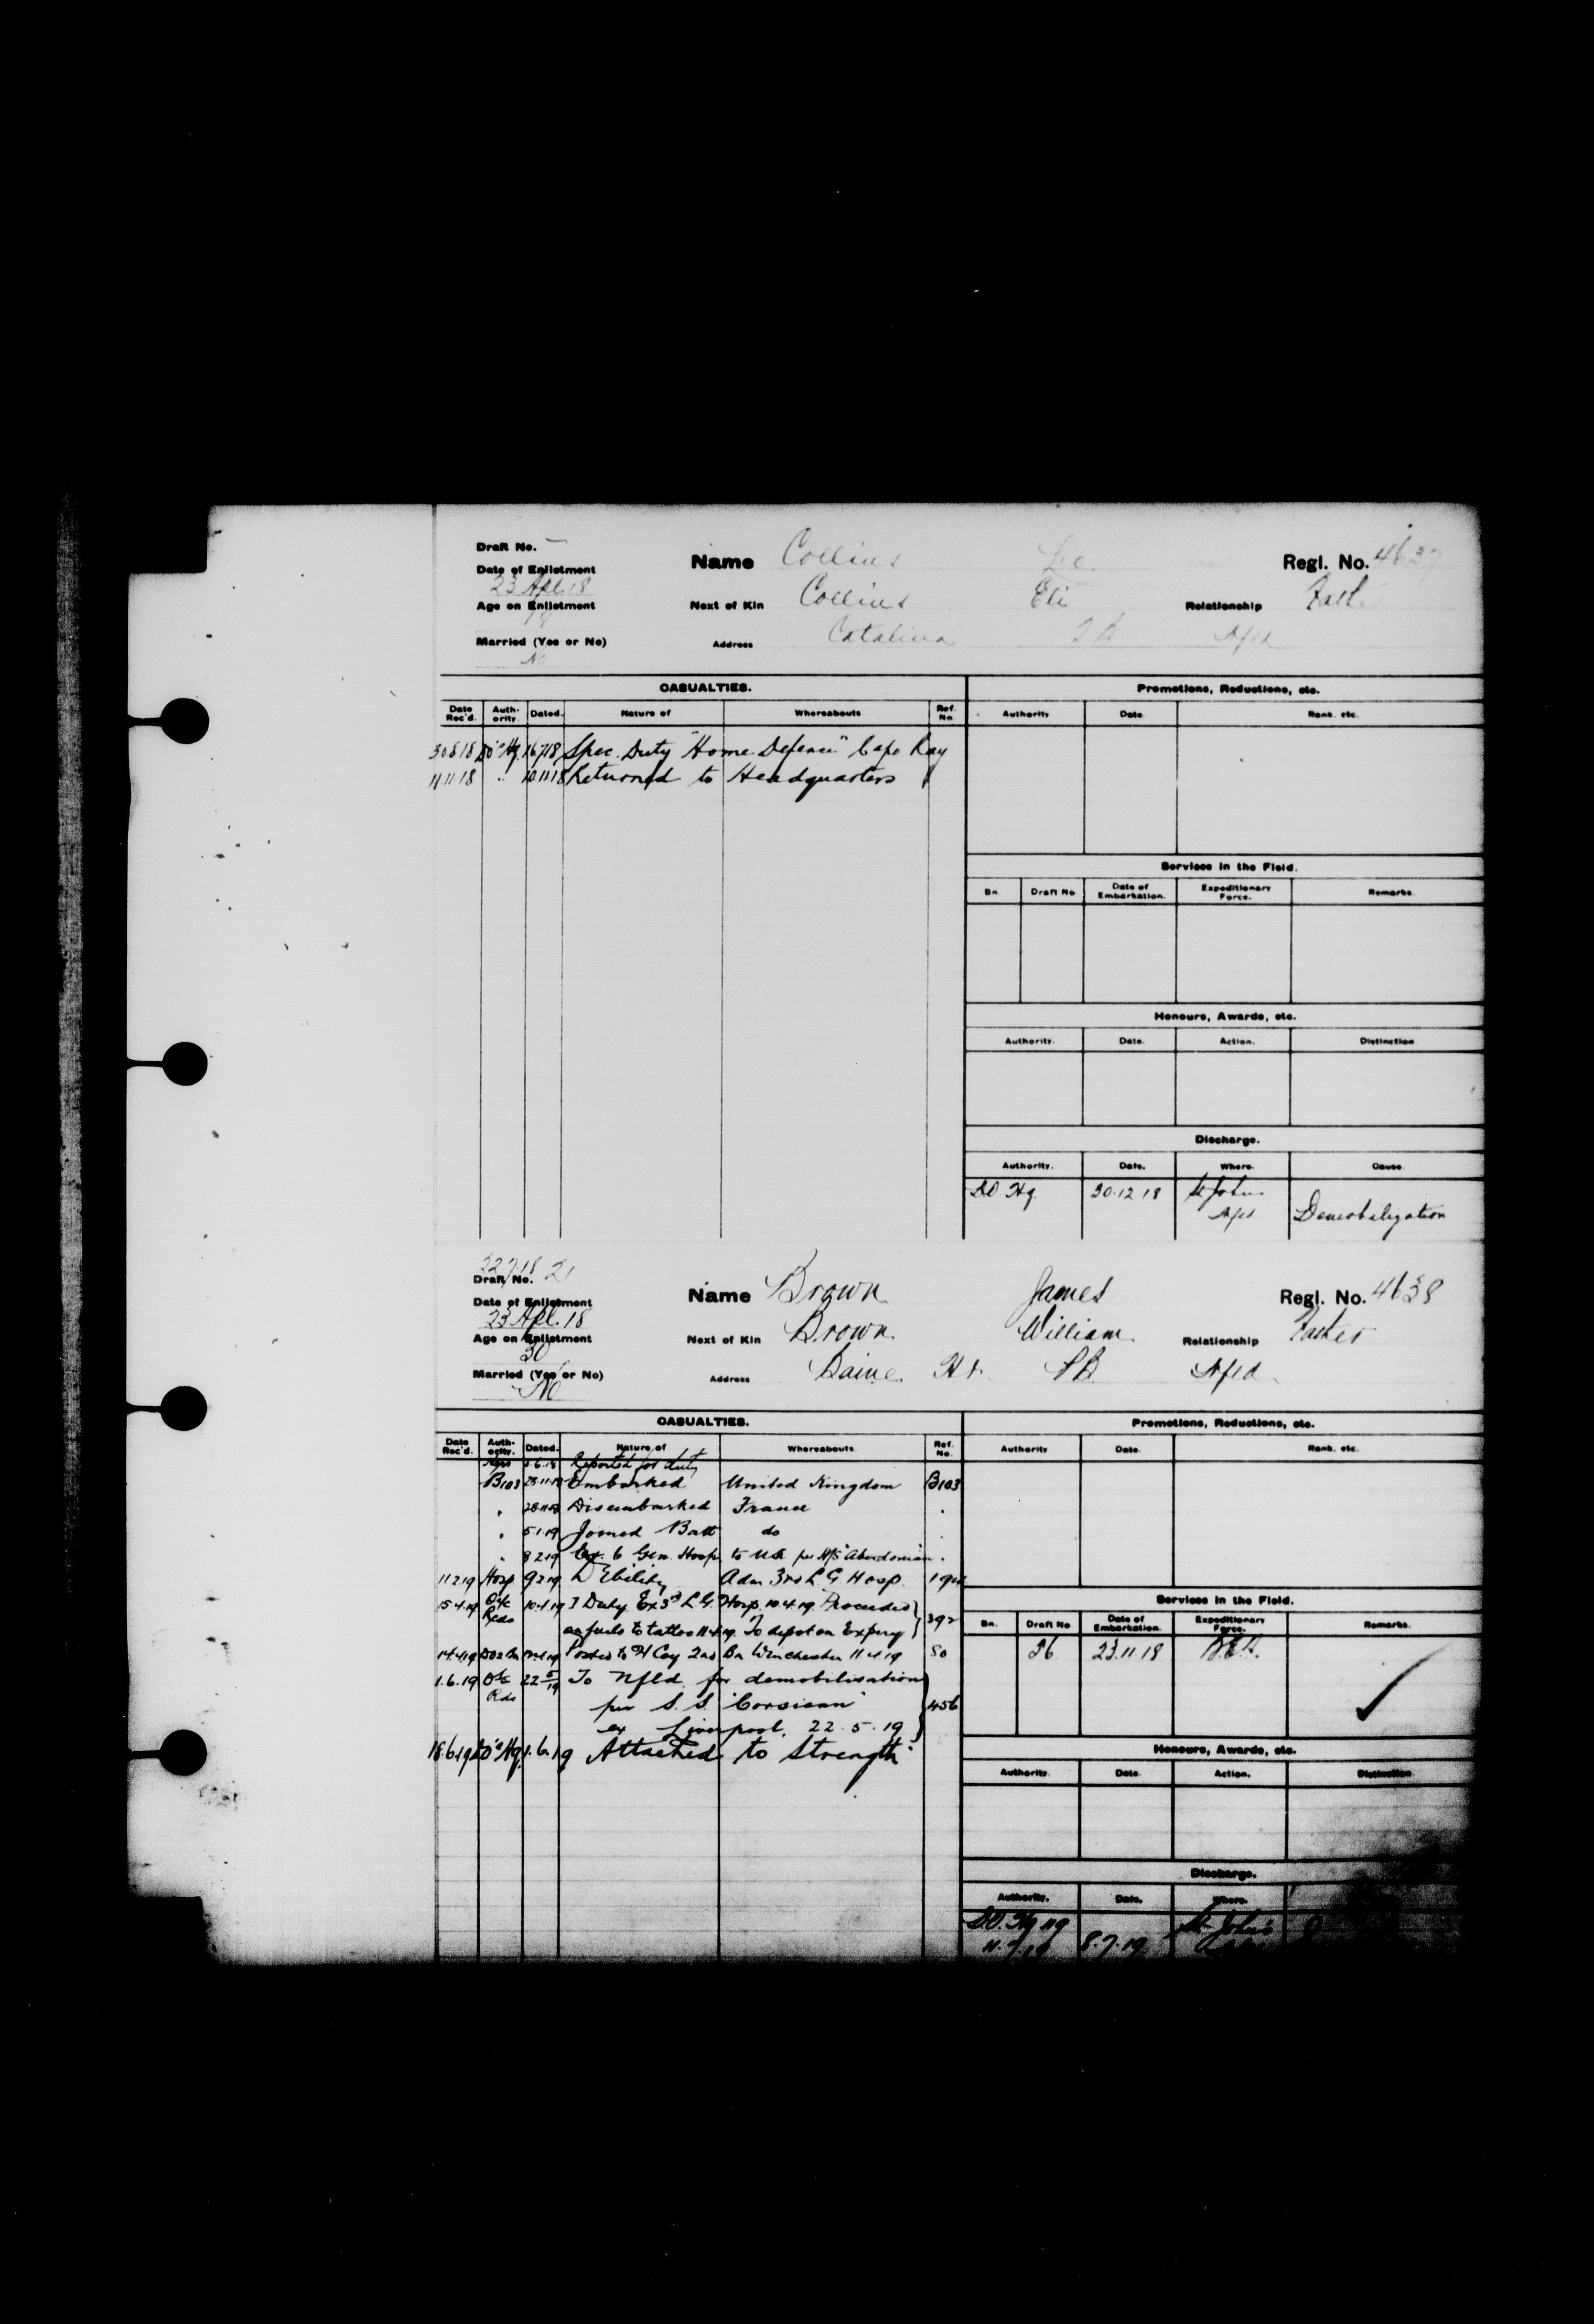 Draft No. —
Name Collins Leo. Regl. No. 4637
Date of Enlistment
23 Apl. 18
Age on Enlistment Next of Kin Collins Eli Relationship Father
18
Married (Yes or No) Address Catalina T B Nfld
No
CASUALTIES. Promotions, Reductions, etc.
Date Rec'd. Auth-ority. Dated. Nature of Whereabouts Ref. No Authority Date. Rank. etc.
30 8 18 DO's Hq. 16 7 18 Spec. Duty "Home Defence" Cape Ray
11 11 18 " 10 11 18 Returned to Headquarters
Services in the Field.
Bn. Draft No Date of Embarkation. Expeditionary Force. Remarks.
Honours, Awards, etc.
Authority. Date. Action. Distinction
Discharge.
Authority. Date. Where. Cause.
DO. Hq. 30.12.18 St John's Nfld Demobilization
22.7.18
Draft No. 21
Name Brown James Regl. No. 4638
Date of Enlistment
23 Apl. 18
Age on Enlistment Next of Kin Brown William Relationship Father
30
Married (Yes or No) Address Baine Hr. P B Nfld.
No
CASUALTIES. Promotions, Reductions, etc.
Date Rec'd. Auth-ority. Dated. Nature of Whereabouts Ref. No. Authority Date. Rank. etc.
Reported for duty
B103 23-11-18 Embarked United Kingdom B103
" Disembarked France "
" 5 1 19 Joined Batt do "
" 8 2 19 Ex. 6 Gen. Hosp to UK per H/S "Aberdonian" "
11 2 19 Hosp 9 2 19 Debility Adm 3rd L G Hosp.
15.4.19 O i/c Rcds 10.4.19 Duty. Ex 3rd L.G. Hosp. 10.4.19. Proceeded
on furlo to tattoo 11.4.19. To depot on Expiry 392
14.4.19 Posted to H Coy 2nd Bn Winchester 11 4 19 80
1.6.19 O i/c Rds 22 5/19 To Nfld. for demobilisation
per S.S. "Corsican" 456
ex Liverpool. 22.5.19
18.6.19 DO's Hq. 1.6.19 Attached to Strength
Services in the Field.
Bn. Draft No Date of Embarkation. Expeditionary Force. Remarks.
56 23.11.18 B.E.F.
Honours, Awards, etc.
Authority. Date. Action. Distinction
Discharge.
Authority. Date. Where.
DO. Hq 8.7.19 St John's
11.7.19